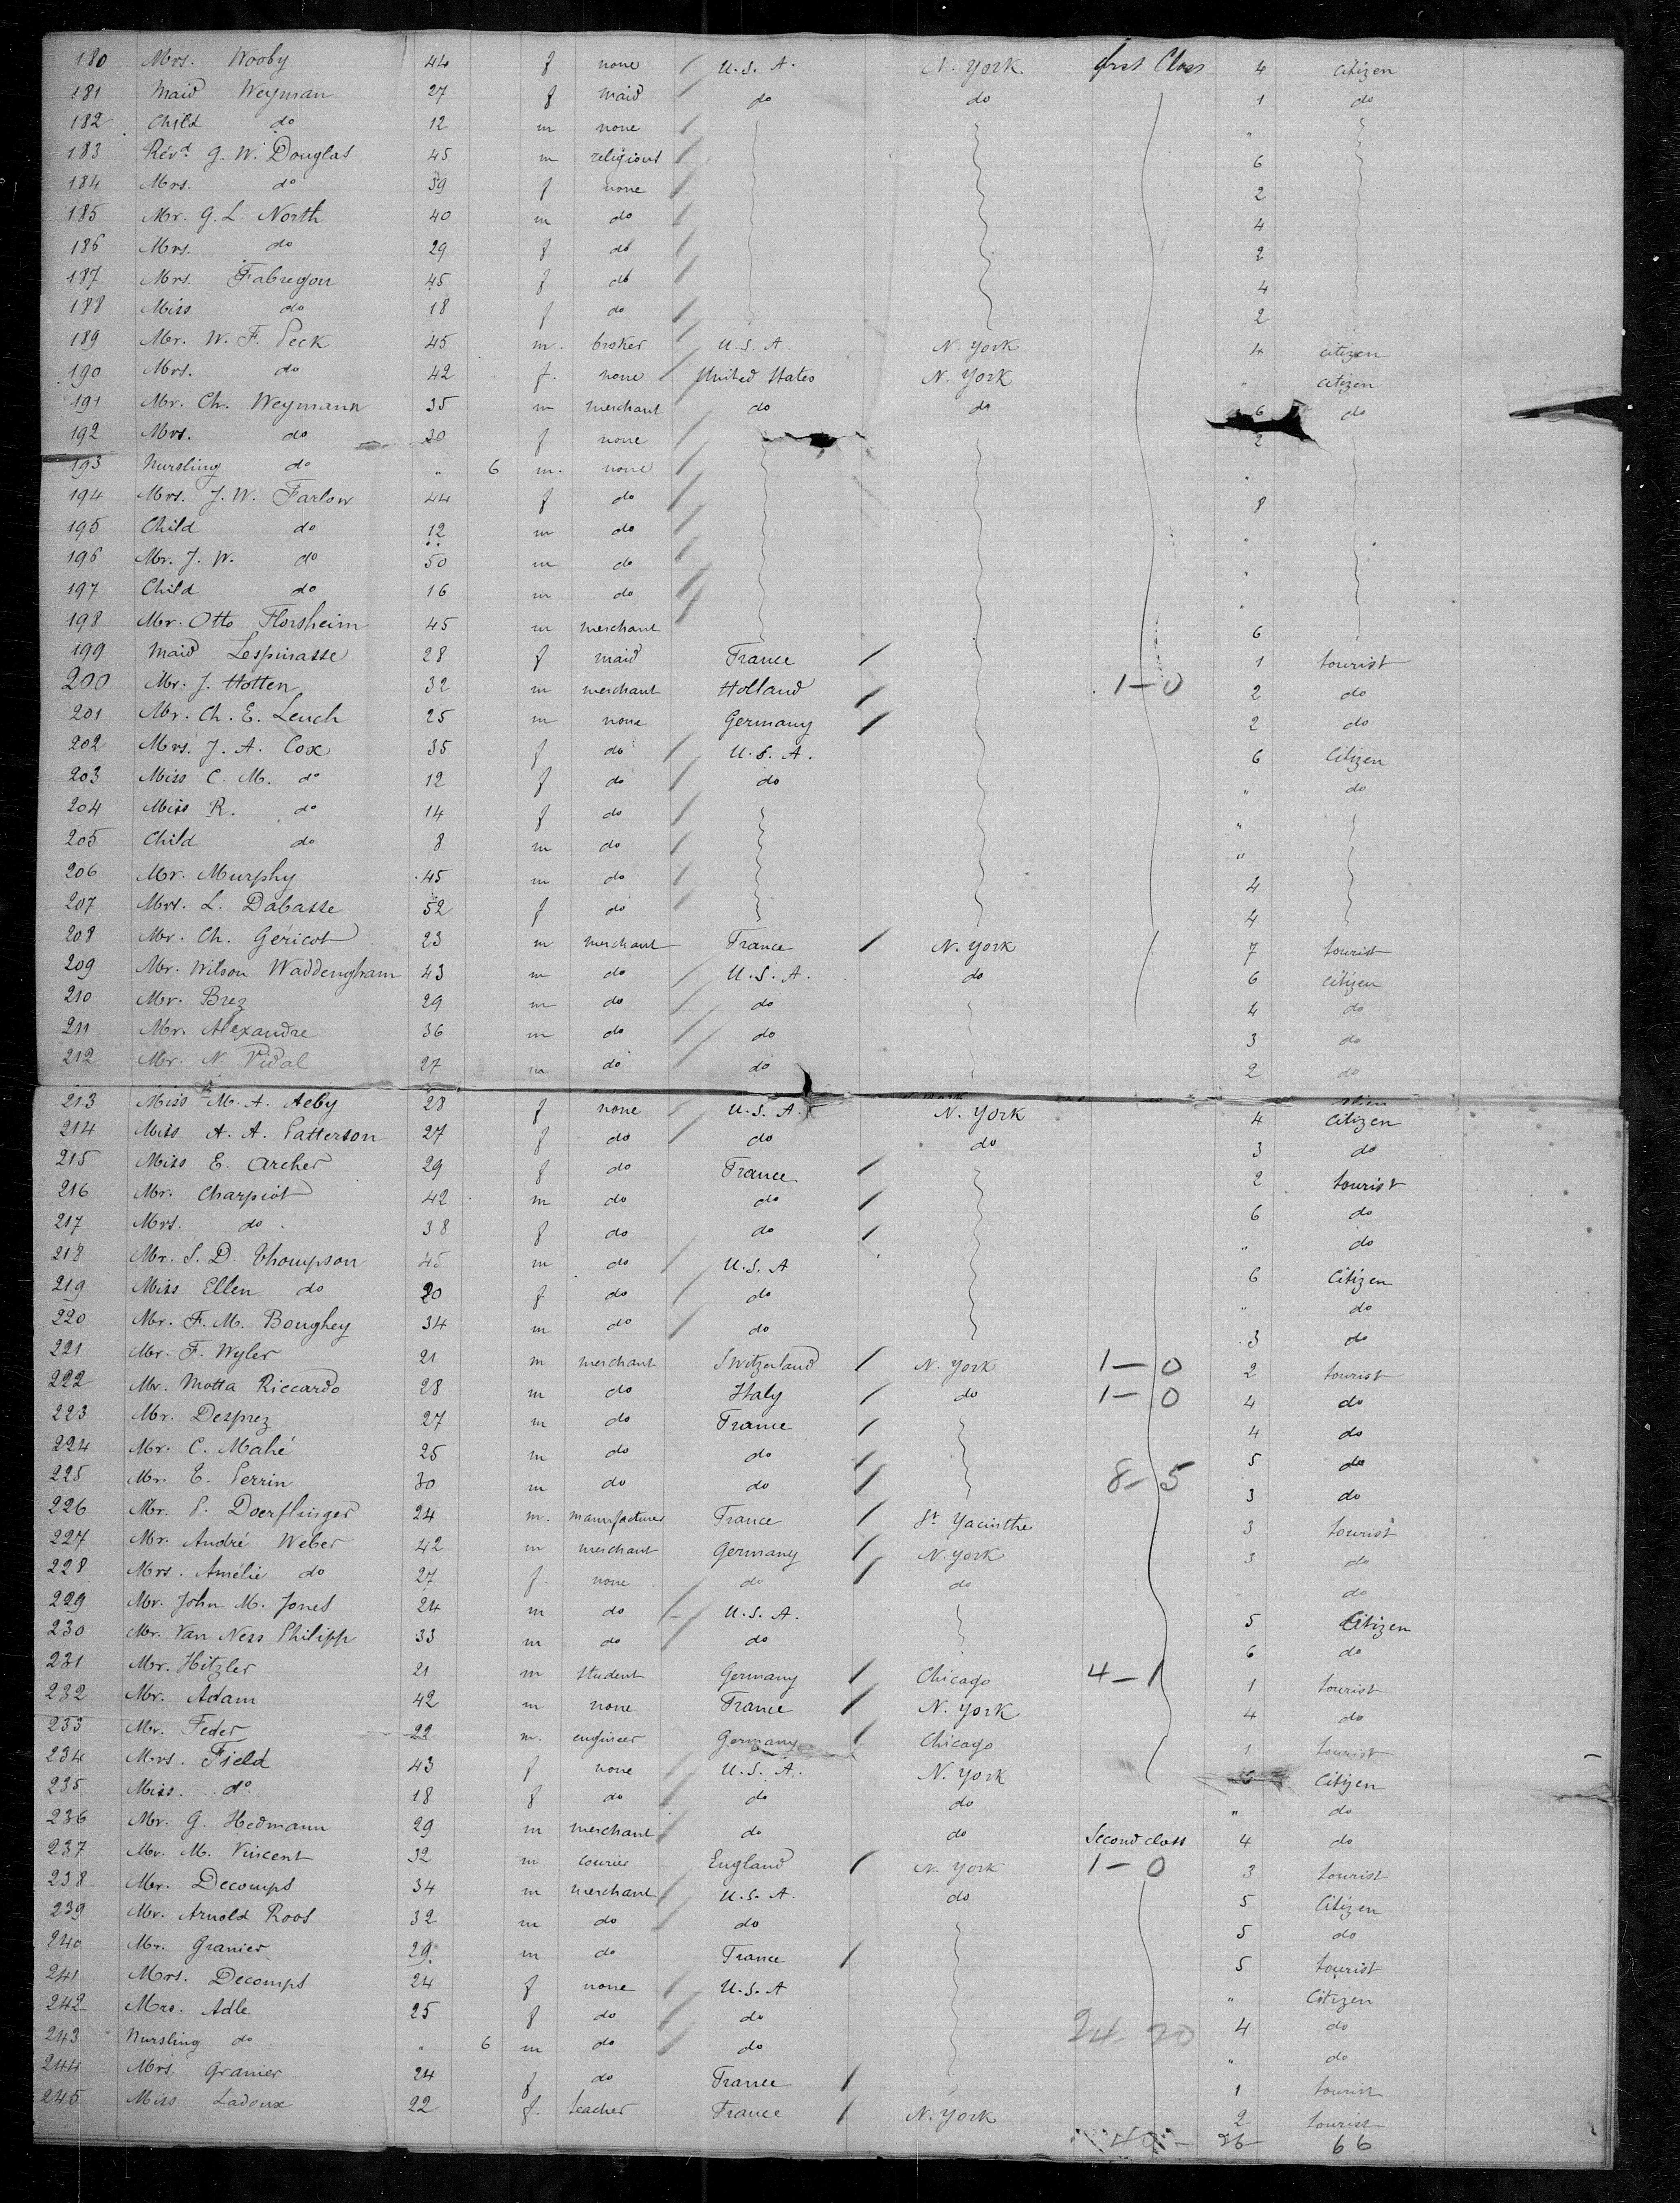 180 Mrs. Wooby 44 f none / U.S.A. N. York. first Class 4 citizen
181 Maid Weyman 27 f maid / do do 1 do
182 Child do 12 m none / "
183 Révd. G. W. Douglas 45 m religious / 6
184 Mrs. do 39 f none / 2
185 Mr. G. L. North 40 m do / 4
186 Mrs. do 29 f do / 2
187 Mrs. Fabregon 45 f do / 4
188 Miss do 18 f do / 2
189 Mr. W. F. Peck 45 m. broker / U.S.A. N. York 4 citizen
190 Mrs. do 42 f. none / United States N. York " citizen
191 Mr. Ch. Weymann 35 m merchant do do 6 do
192 Mrs. do 30 f none / 2
193 Nursling do " 6 m. none / "
194 Mrs. J. W. Farlow 44 f do / 8
195 Child do 12 m do / "
196 Mr. J. W. do 50 m do / "
197 Child do 16 m do / "
198 Mr. Otto Florsheim 45 m merchant / 6
199 Maid Lespinasse 28 f maid France / 1 tourist
200 Mr. J. Hotten 32 m merchant Holland / 1-0 2 do
201 Mr. Ch. E. Leuch 25 m none Germany / 2 do
202 Mrs. J. A. Cox 35 f do / U.S.A. 6 Citizen
203 Miss C. M. do 12 f do / do " do
204 Miss R. do 14 f do / "
205 Child do 8 m do / "
206 Mr. Murphy 45 m do / 4
207 Mrs. L. Dabasse 52 f do / 4
208 Mr. Ch. Géricot 23 m merchant France / N. York 7 tourist
209 Mr. Wilson Waddengham 43 m do / U.S.A. do 6 citizen
210 Mr. Brez 29 m do / do 4 do
211 Mr. Alexandre 36 m do / do 3 do
212 Mr. N. Vidal 27 m do / do 2 do
213 Miss M. A. Aeby 28 f none / U.S.A. N. York 4 Citizen
214 Miss A. A. Patterson 27 f do / do do 3 do
215 Miss E. Archer 29 f do France / 2 tourist
216 Mr. Charpiot 42 m do do / 6 do
217 Mrs. do 38 f do do / " do
218 Mr. S. D. Thompson 45 m do / U.S.A 6 Citizen
219 Miss Ellen do 20 f do / do " do
220 Mr. F. M. Boughey 34 m do / do 3 do
221 Mr. F. Wyler 21 m merchant Switzerland / N. York 1-0 2 tourist
222 Mr. Motta Riccardo 28 m do Italy / do 1-0 4 do
223 Mr. Desprez 27 m do France / 4 do
224 Mr. C. Mahé 25 m do do / 5 do
225 Mr. E. Perrin 30 m do do / 8-5 3 do
226 Mr. P. Doerflinger 24 m. manufacturer France / St Yacinthe 3 tourist
227 Mr. André Weber 42 m merchant Germany / N. York 3 do
228 Mrs. Amélie do 27 f. none do / do do
229 Mr. John M. Jones 24 m do / U.S.A. 5 Citizen
230 Mr. Van Ness Philipp 33 m do / do 6 do
231 Mr. Hitzler 21 m student Germany / Chicago 4-1 1 tourist
232 Mr. Adam 42 m none France / N. York 4 do
233 Mr. Feder 22 m. engineer Germany / Chicago 1 tourist
234 Mrs. Field 43 f none / U.S.A. N. York Citizen
235 Miss. do 18 f do / do do " do
236 Mr. G. Hedmann 29 m merchant / do do Second class 4 do
237 Mr. M. Vincent 32 m courier England / N. York 1-0 3 tourist
238 Mr. Decomps 34 m merchant / U.S.A. do 5 Citizen
239 Mr. Arnold Roos 32 m do / do 5 do
240 Mr. Granier 29 m do France / 5 tourist
241 Mrs. Decomps 24 f none / U.S.A " Citizen
242 Mrs. Adle 25 f do / do 4 do
243 Nursling do " 6 m do / do 24-20 " do
244 Mrs. Granier 24 f do France / 1 tourist
245 Miss Ladoux 22 f. teacher France / N. York 2 tourist
26 66